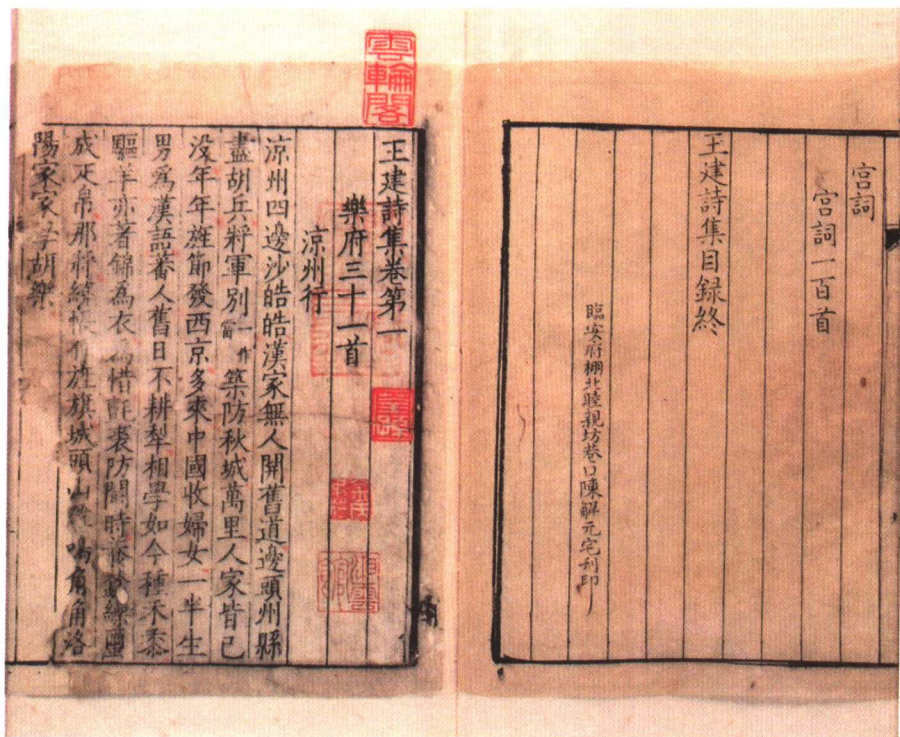 宫詞
宫詞一百首
王建詩集目録終
臨安府棚北睦親坊巷口陳解元宅刋印
雲輪閣
王建詩集卷第一
樂府三十一首
涼州行
涼州四邊沙皓皓漢家無人開舊道邊頭州縣
盡胡兵將軍別一作當築防秋城萬里人家皆已
没年年旌節發西京多來中國收婦女一半生
男為漢語蕃人舊日不耕犂相學如今種禾黍
驅羊亦著錦為衣為惜氊裘防鬭時養蠶繰繭
成疋帛那將繞帳作旌旗城頭山雞鳴角角洛
陽家家學胡樂